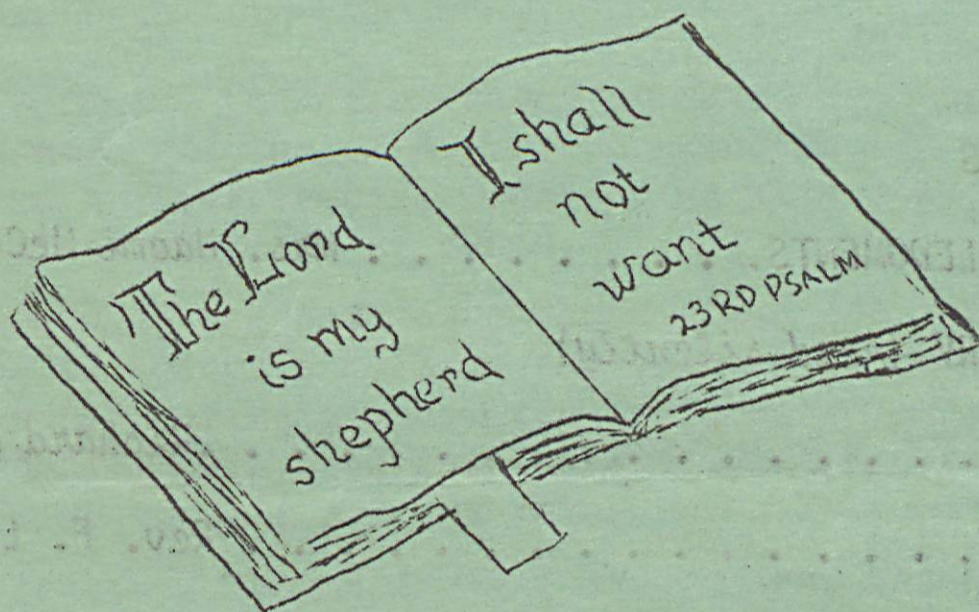 The Lord
is my
shepherd
I shall
not
want
23RD PSALM